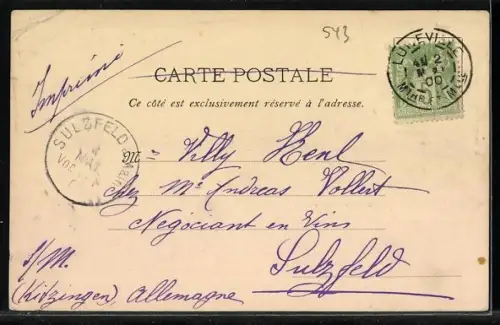 543
Imprimé
CARTE POSTALE
Ce côté est exclusivement réservé à l'adresse.
LUNEVILLE
2
00
SULZFELD
4
MAI
Mr Willy Henl
chez Mr Andreas Vollert
Négociant en Vins
Sulzfeld
s/M.
(Kitzingen) Allemagne